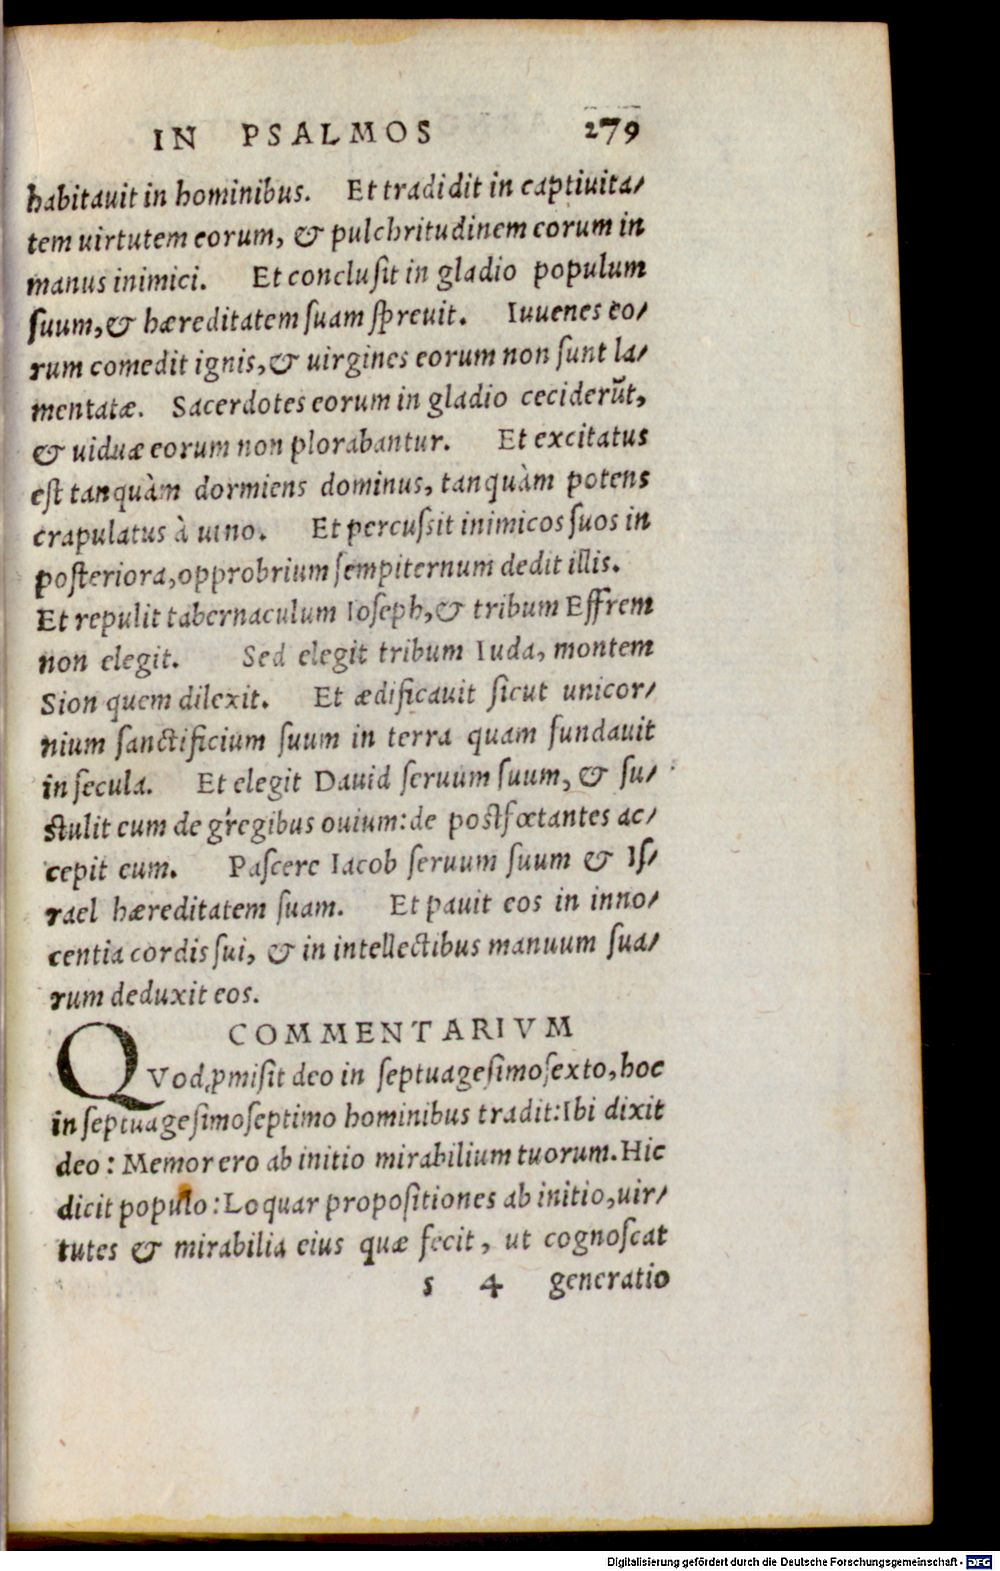 IN PSALMOS 279
habitauit in hominibus. Et tradidit in captiuita/
tem uirtutem eorum, & pulchritudinem eorum in
manus inimici. Et conclusit in gladio populum
suum, & hæreditatem suam spreuit. Iuuenes eo/
rum comedit ignis, & uirgines eorum non sunt la/
mentatæ. Sacerdotes eorum in gladio ceciderūt,
& uiduæ eorum non plorabantur. Et excitatus
est tanquàm dormiens dominus, tanquàm potens
crapulatus à uino. Et percussit inimicos suos in
posteriora, opprobrium sempiternum dedit illis.
Et repulit tabernaculum Ioseph, & tribum Effrem
non elegit. Sed elegit tribum Iuda, montem
Sion quem dilexit. Et ædificauit sicut unicor/
nium sanctificium suum in terra quam fundauit
in secula. Et elegit Dauid seruum suum, & su/
stulit eum de gregibus ouium: de postfœtantes ac/
cepit eum. Pascere Iacob seruum suum & Is/
rael hæreditatem suam. Et pauit eos in inno/
centia cordis sui, & in intellectibus manuum sua/
rum deduxit eos.
COMMENTARIVM
QVod ꝓmisit deo in septuagesimosexto, hoc
in septuagesimoseptimo hominibus tradit: Ibi dixit
deo: Memor ero ab initio mirabilium tuorum. Hic
dicit populo: Loquar propositiones ab initio, uir/
tutes & mirabilia eius quæ fecit, ut cognoscat
s 4 generatio
Digitalisierung gefördert durch die Deutsche Forschungsgemeinschaft - DFG